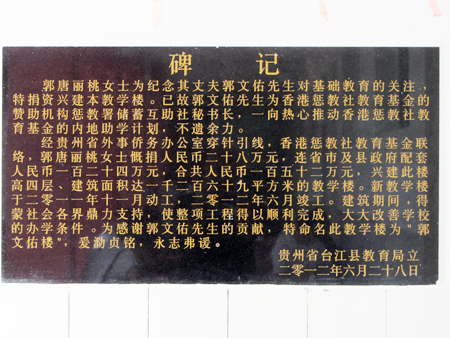 碑 记
郭唐丽桃女士为纪念其丈夫郭文佑先生对基础教育的关注，
特捐资兴建本教学楼。已故郭文佑先生为香港惩教社教育基金的
赞助机构惩教署储蓄互助社秘书长，一向热心推动香港惩教社教
育基金的内地助学计划，不遗余力。
经贵州省外事侨务办公室穿针引线，香港惩教社教育基金联
络，郭唐丽桃女士慨捐人民币二十八万元，连省市及县政府配套
人民币一百二十四万元，合共人民币一百五十二万元，兴建此楼
高四层、建筑面积达一千二百六十九平方米的教学楼。新教学楼
于二零一一年十一月动工，二零一二年六月竣工。建筑期间，得
蒙社会各界鼎力支持，使整项工程得以顺利完成，大大改善学校
的办学条件。为感谢郭文佑先生的贡献，特命名此教学楼为“郭
文佑楼”，爰勒贞铭，永志弗谖。
贵州省台江县教育局立
二零一二年六月二十八日